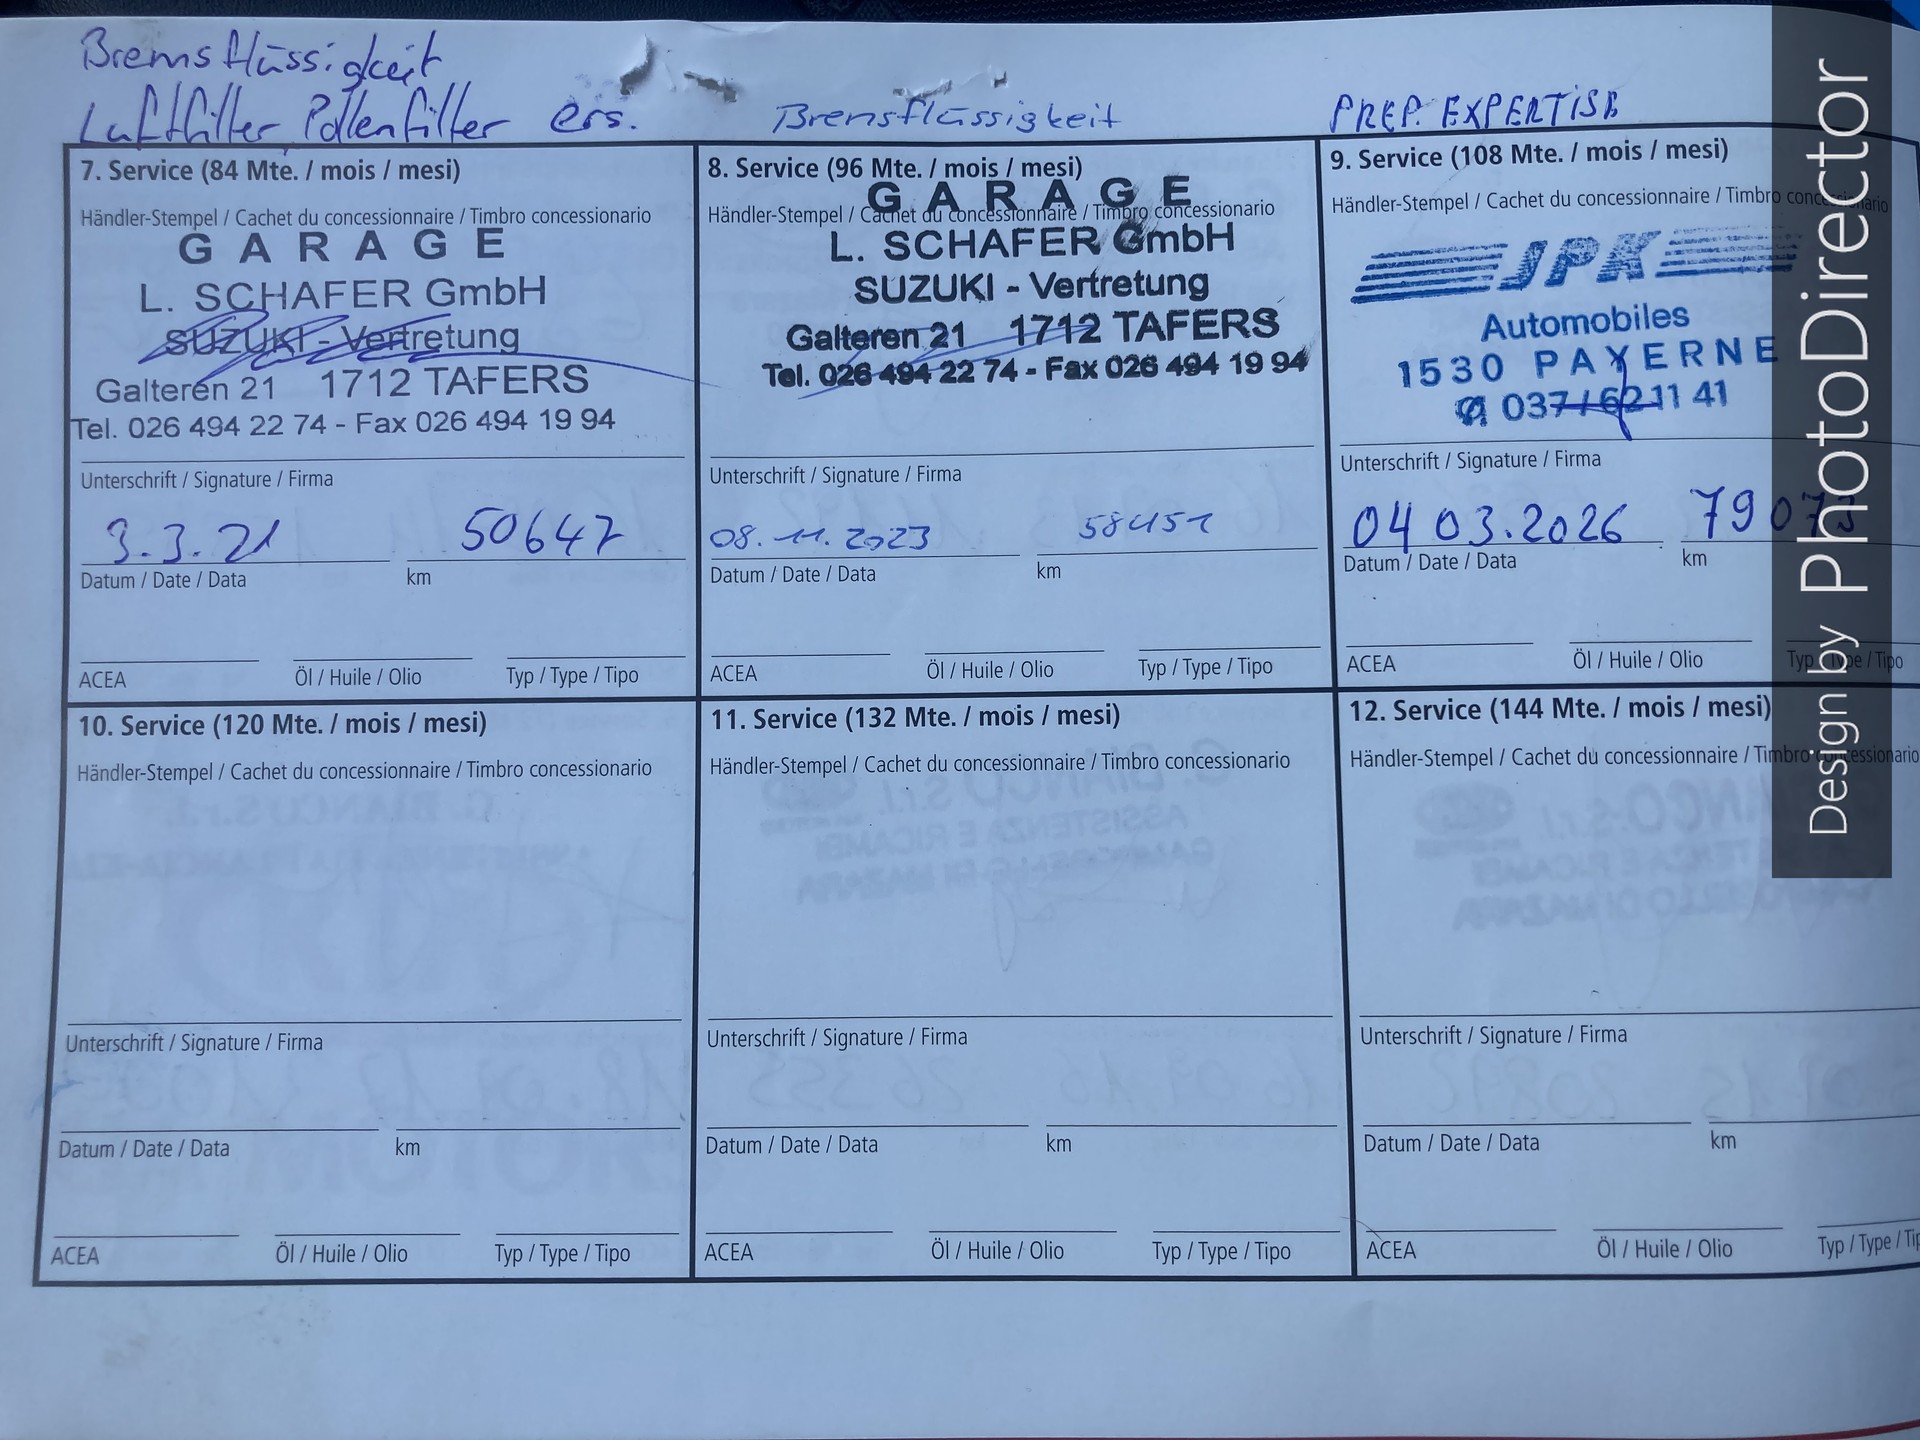 Bremsflüssigkeit
Luftfilter Pollenfilter ers.
Bremsflüssigkeit
PREP. EXPERTISE
7. Service (84 Mte. / mois / mesi)
Händler-Stempel / Cachet du concessionnaire / Timbro concessionario
GARAGE
L. SCHAFER GmbH
SUZUKI - Vertretung
Galteren 21 1712 TAFERS
Tel. 026 494 22 74 - Fax 026 494 19 94
Unterschrift / Signature / Firma
3.3.21 50647
Datum / Date / Data km
ACEA Öl / Huile / Olio Typ / Type / Tipo
8. Service (96 Mte. / mois / mesi)
Händler-Stempel / Cachet du concessionnaire / Timbro concessionario
GARAGE
L. SCHAFER GmbH
SUZUKI - Vertretung
Galteren 21 1712 TAFERS
Tel. 026 494 22 74 - Fax 026 494 19 94
Unterschrift / Signature / Firma
08.11.2023
Datum / Date / Data km
ACEA Öl / Huile / Olio Typ / Type / Tipo
9. Service (108 Mte. / mois / mesi)
Händler-Stempel / Cachet du concessionnaire / Timbro concessionario
JPK
Automobiles
1530 PAYERNE
037 / 62 11 41
Unterschrift / Signature / Firma
04 03.2026 79073
Datum / Date / Data km
ACEA Öl / Huile / Olio Typ / Type / Tipo
10. Service (120 Mte. / mois / mesi)
Händler-Stempel / Cachet du concessionnaire / Timbro concessionario
Unterschrift / Signature / Firma
Datum / Date / Data km
ACEA Öl / Huile / Olio Typ / Type / Tipo
11. Service (132 Mte. / mois / mesi)
Händler-Stempel / Cachet du concessionnaire / Timbro concessionario
Unterschrift / Signature / Firma
Datum / Date / Data km
ACEA Öl / Huile / Olio Typ / Type / Tipo
12. Service (144 Mte. / mois / mesi)
Händler-Stempel / Cachet du concessionnaire / Timbro concessionario
Unterschrift / Signature / Firma
Datum / Date / Data km
ACEA Öl / Huile / Olio Typ / Type /
Design by PhotoDirector